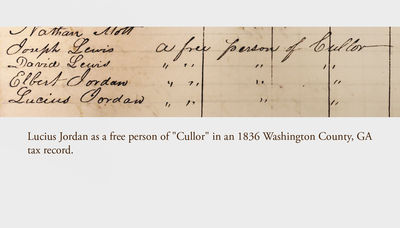 Nathan Mott
Joseph Lewis a free person of Cullor
David Lewis " " " "
Elbert Jordan " " " "
Lucius Jordan " " " "
Lucius Jordan as a free person of "Cullor" in an 1836 Washington County, GA
tax record.